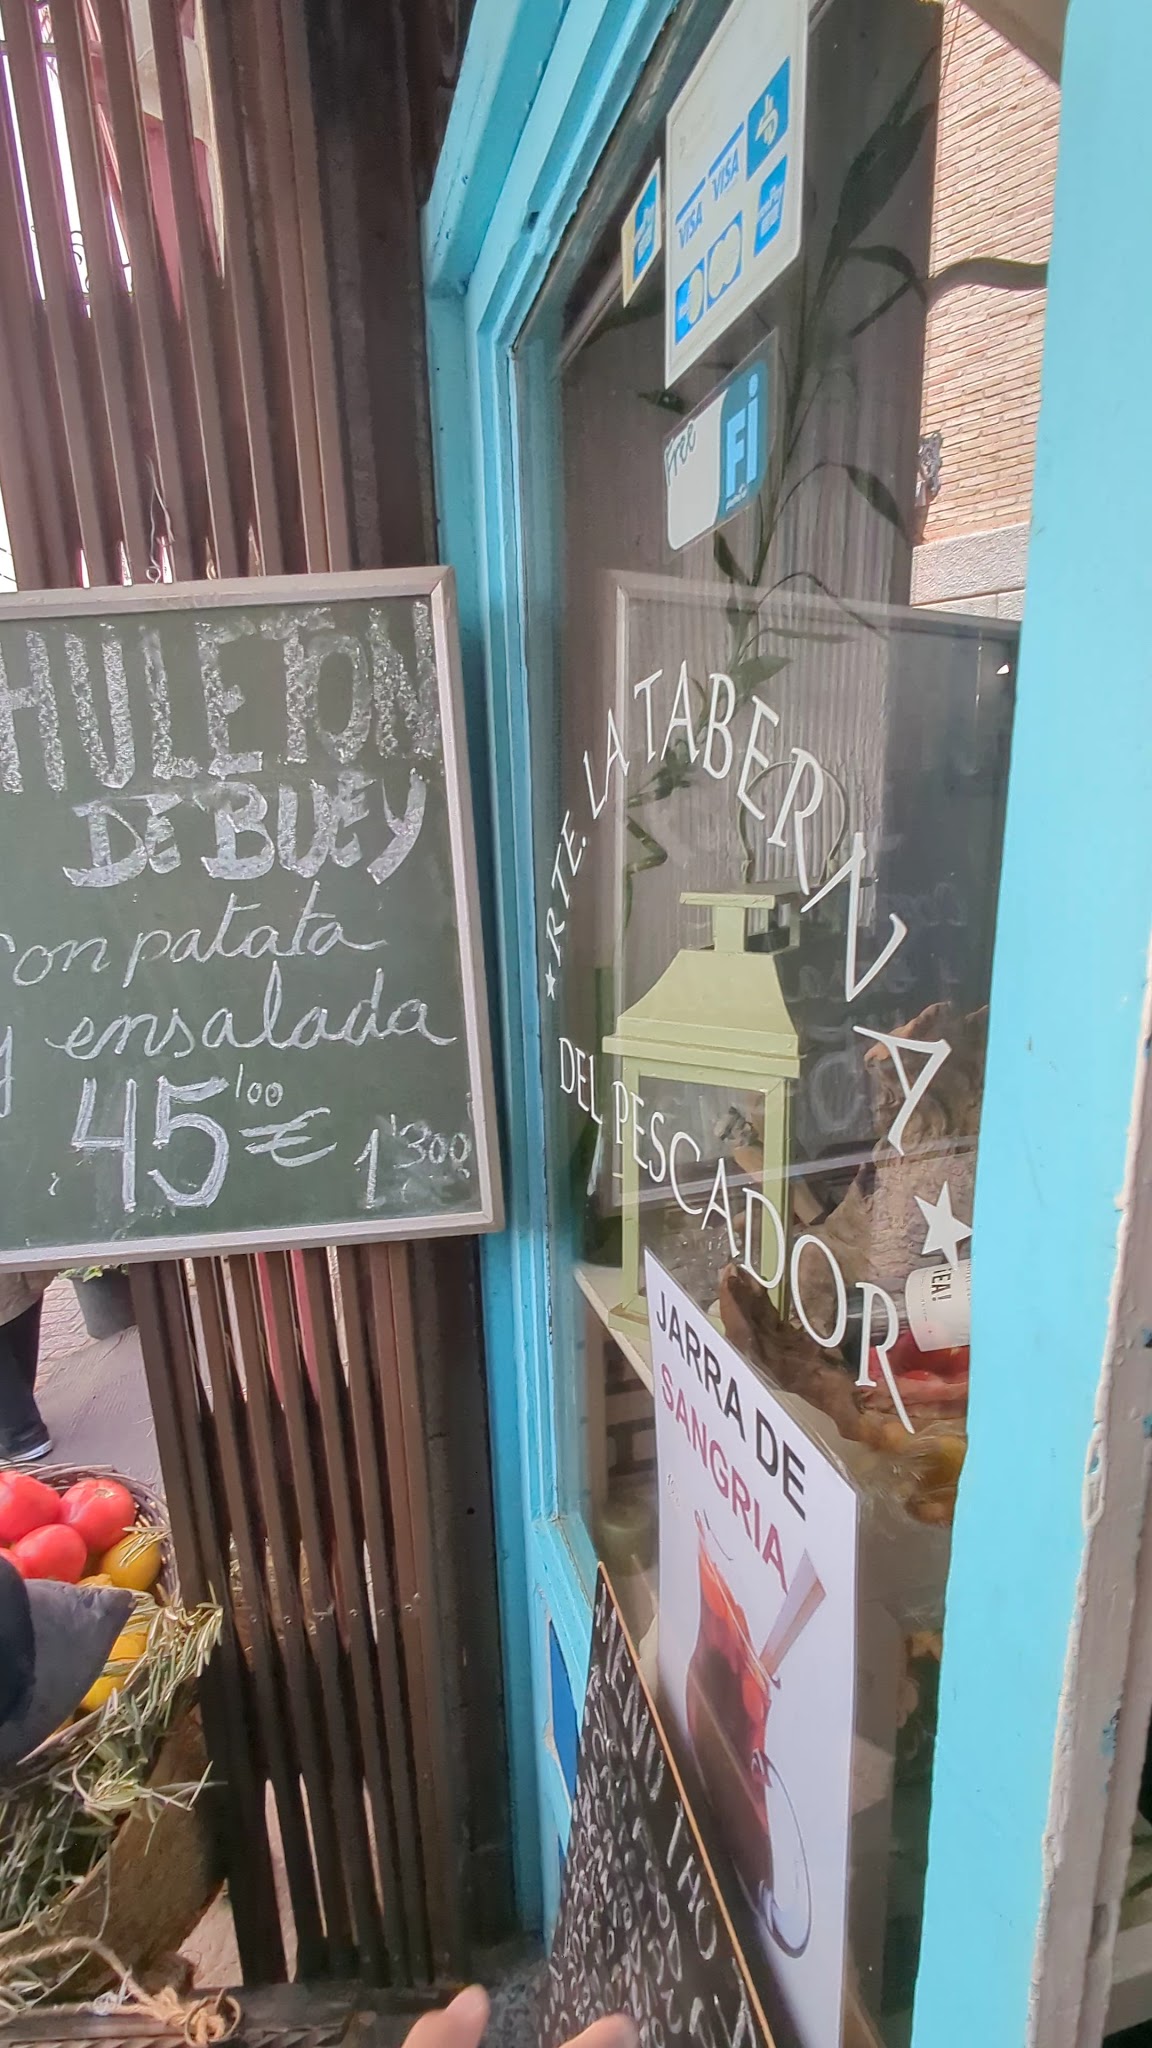 HULETON
DE BUEY
con patata
y ensalada
45'00 € 1'300
VISA VISA
Free
Fi
★ RTE. LA TABERNA
DEL PESCADOR ★
¡EA!
JARRA DE
SANGRIA